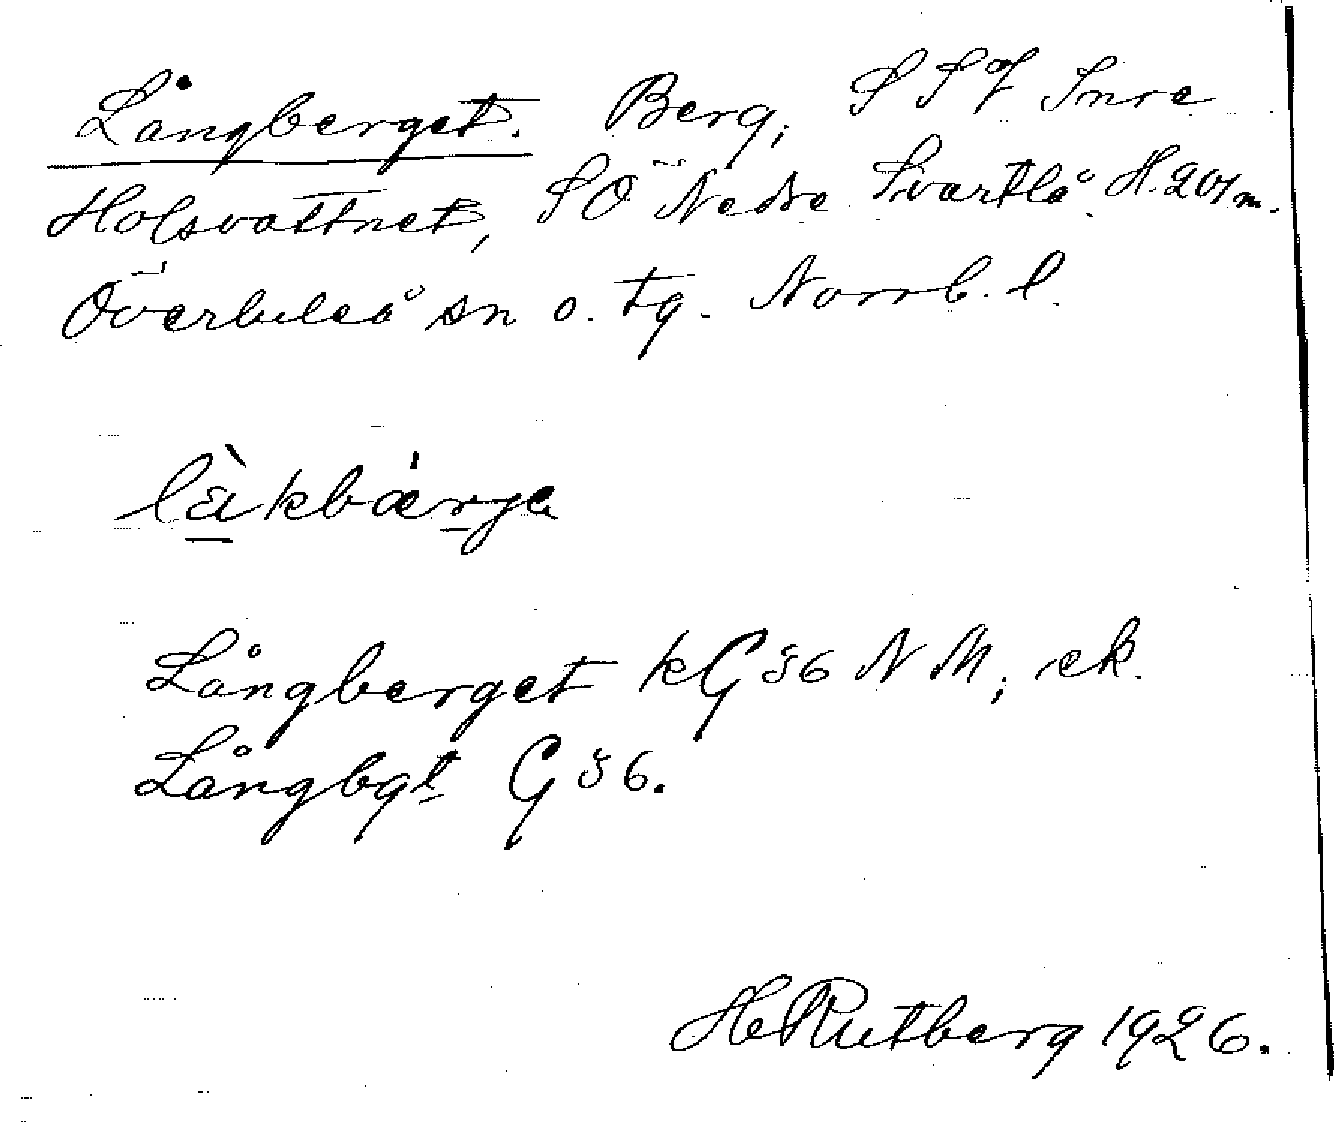 Långberget. Berg, SSV Inre
Holsvattnet, SÖ Nedre Svartlå. H. 201 m.
Överluleå sn o. tg. Norrb. l.
làkbærje
Långberget kG 36 NM; ek.
Långbgt G 36.
H Rutberg 1926.